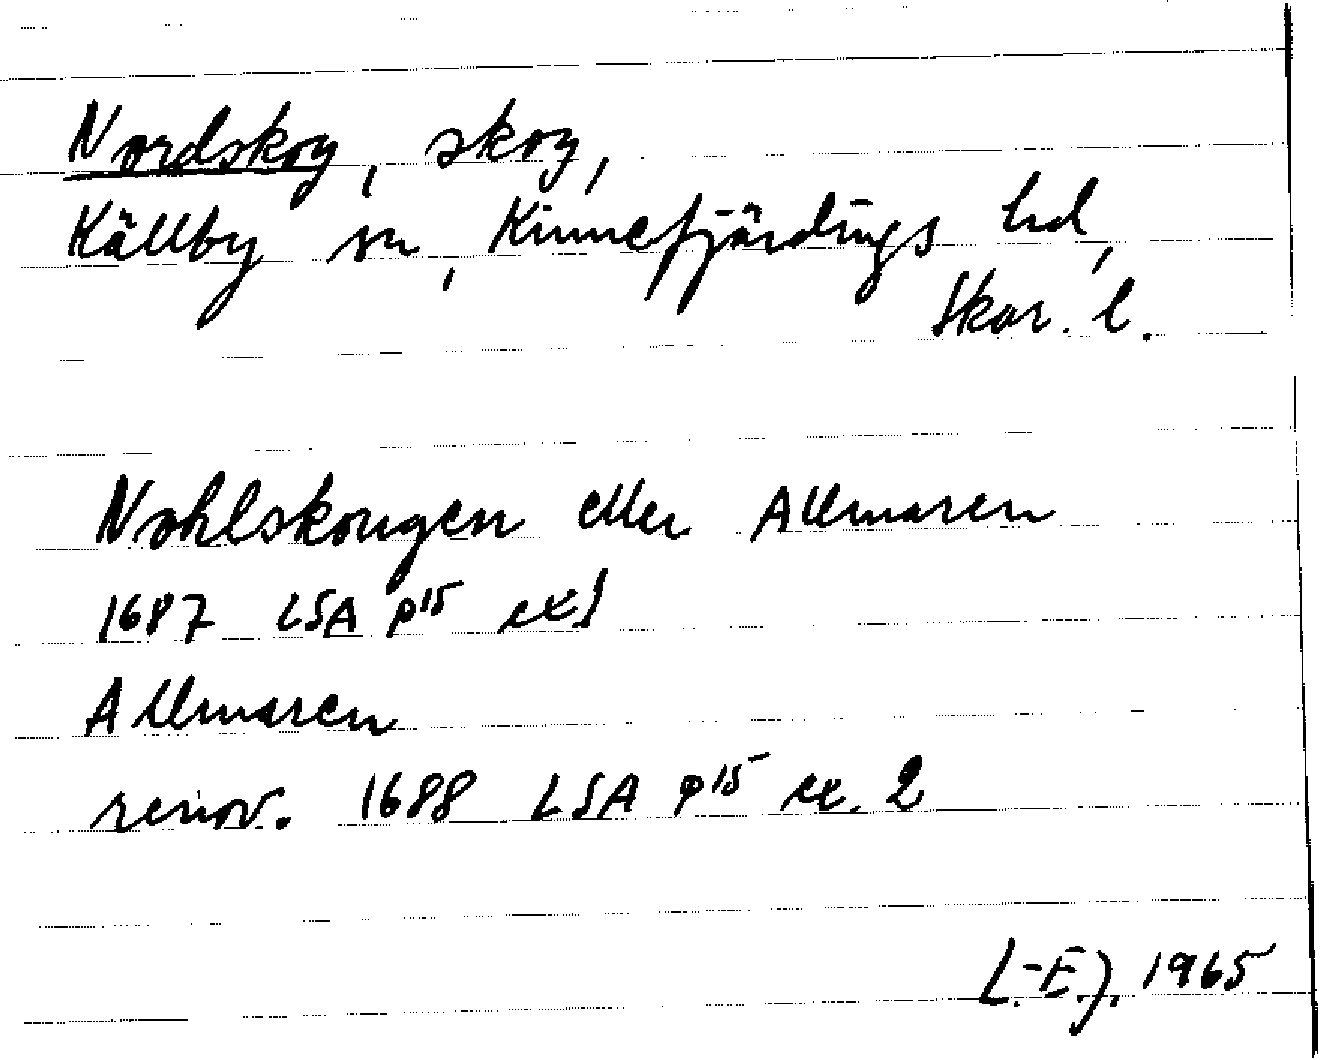 Nordskog, skog,
Källby sn, Kinnefjärdings hd,
Skar. l.
Nohlskougen eller Allmaren
1687 LSA P15 ex 1
Allmaren
renov. 1688 LSA P15 ex. 2
L.-E.J. 1965